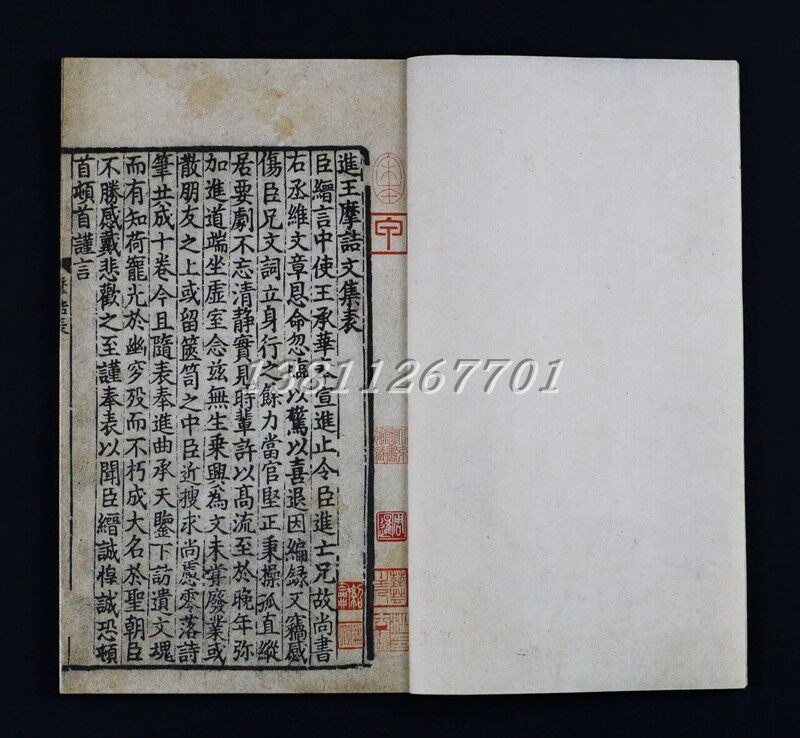 進王摩詰文集表
臣縉言中使王承華奉宣進止令臣進亡兄故尚書
右丞維文章恩命忽臨以驚以喜退因編錄又竊感
傷臣兄文詞立身行之餘力當官堅正秉操孤直縱
居要劇不忘清静實見時輩許以髙流至於晚年弥
加進道端坐虛室念兹無生乗興為文未甞廢業或
散朋友之上或留篋笥之中臣近搜求尚慮零落詩
筆共成十卷今且隨表奉進曲承天鑒下訪遺文魂
而有知荷寵光於幽穸殁而不朽成大名於聖朝臣
不勝感戴悲歡之至謹奉表以聞臣縉誠惶誠恐頓
首頓首謹言
宋本
周暹
13811267701